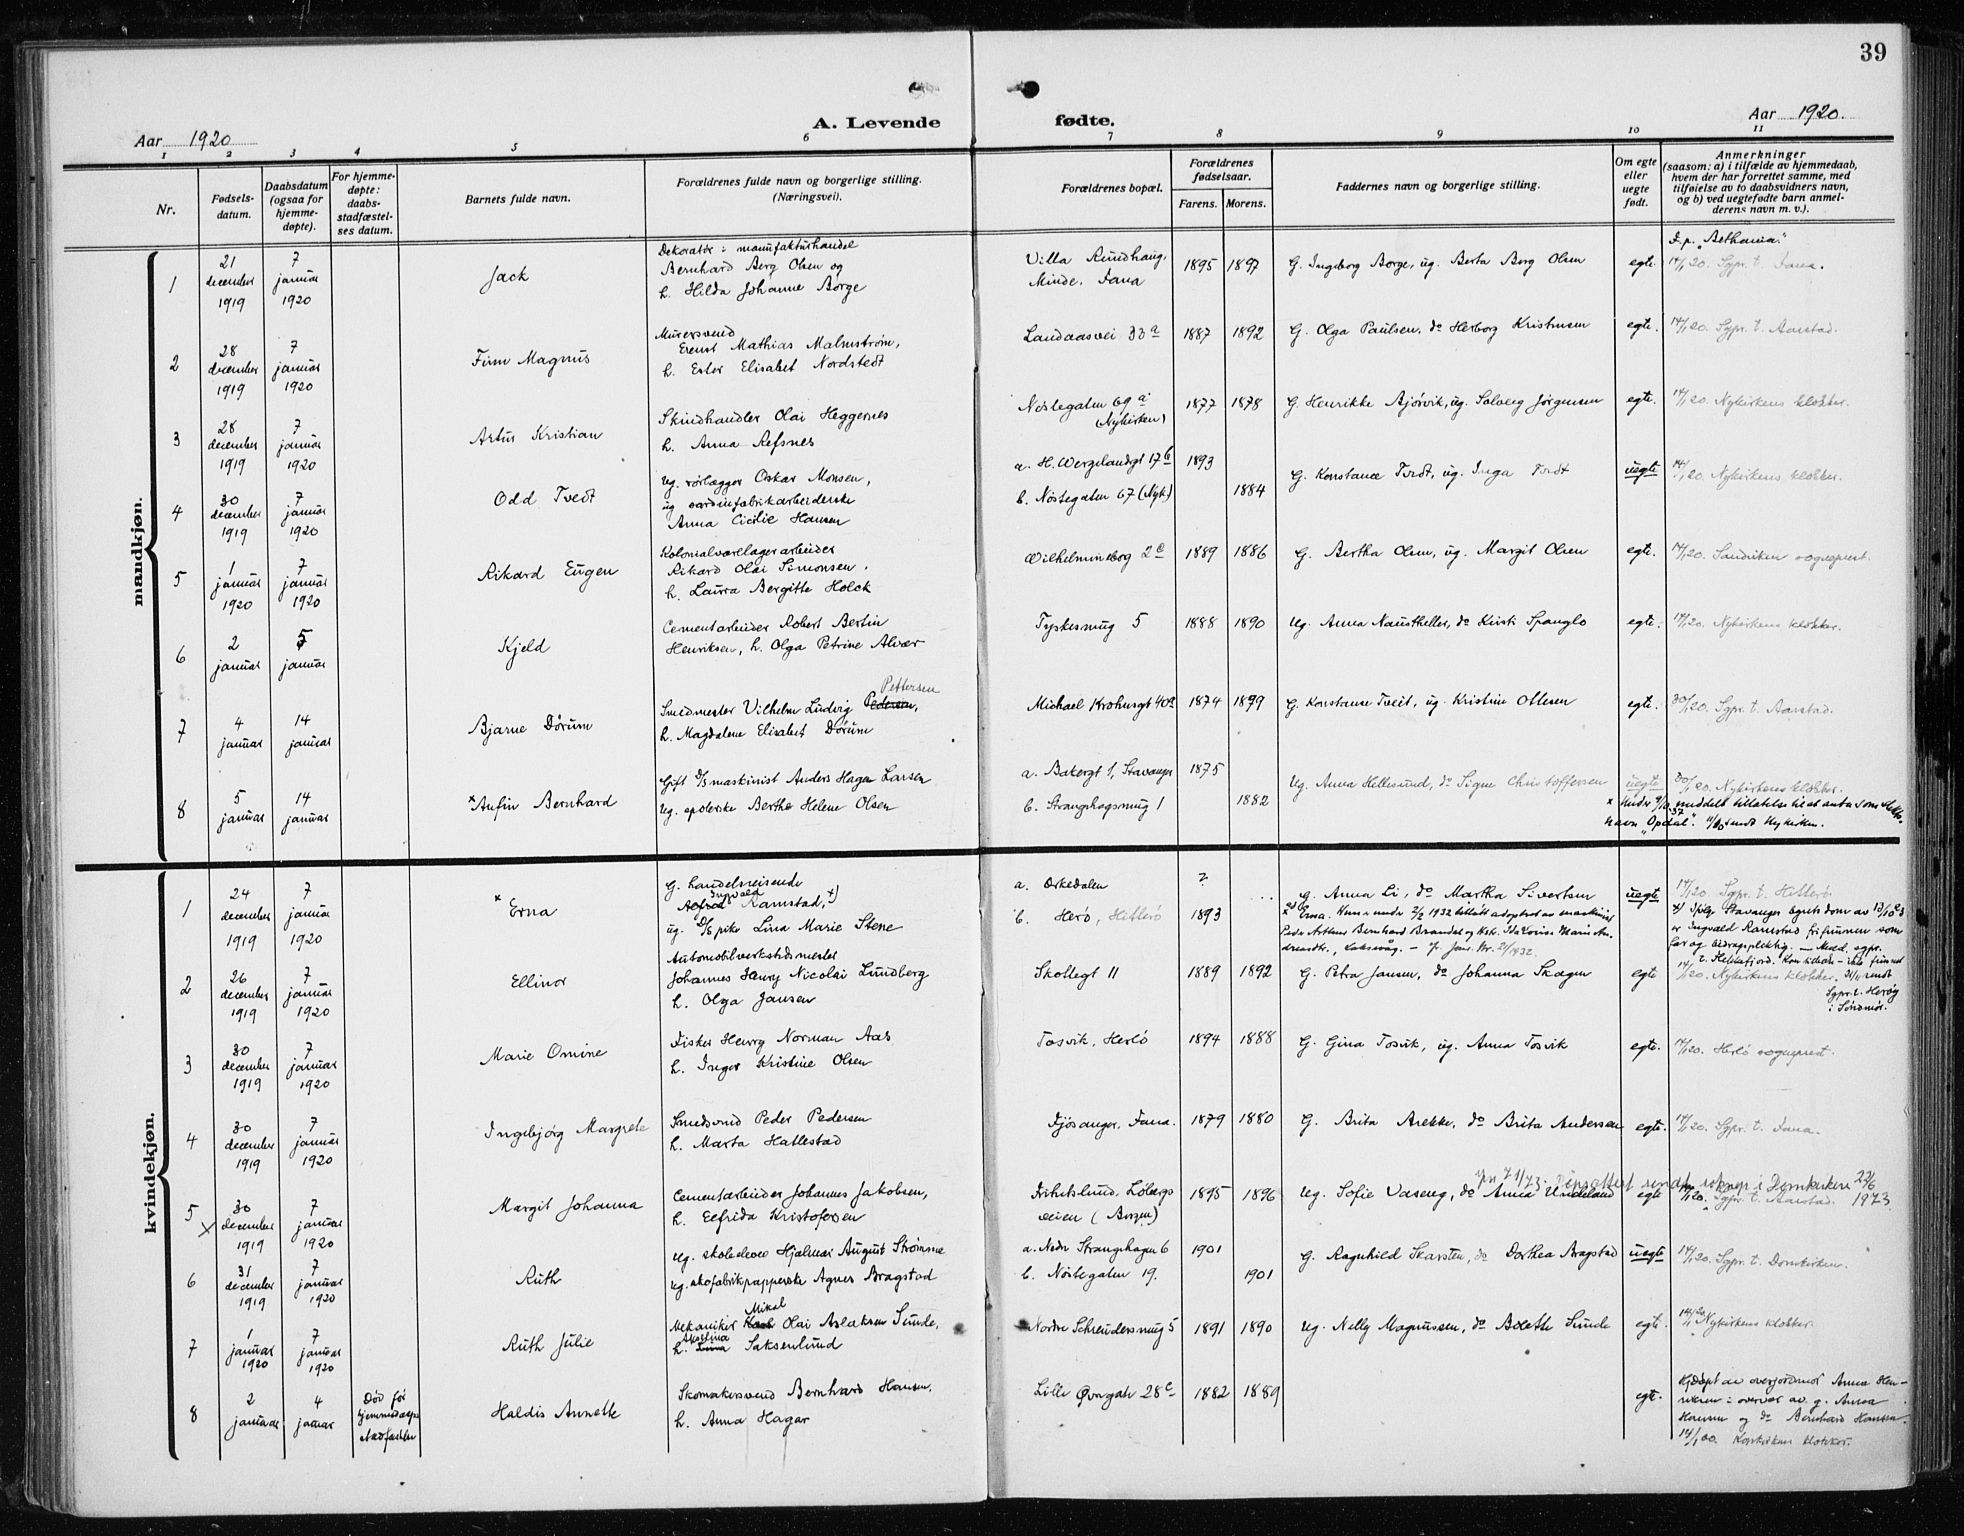 39
A. Levende fødte.
Aar 1920
Aar 1920.
1 2 3 4 5 6 7 8 9 10 11
Nr.
Fødsels-
datum.
Daabsdatum
(ogsaa for
hjemme-
døpte).
For hjemme-
døpte:
daabs-
stadfæstel-
ses datum.
Barnets fulde navn.
Forældrenes fulde navn og borgerlige stilling.
(Næringsvei).
Forældrenes bopæl.
Forældrenes
fødselsaar.
Farens. Morens.
Faddernes navn og borgerlige stilling.
Om egte
eller
uegte
født.
Anmerkninger
(saasom: a) i tilfælde av hjemmedaab,
hvem der har forrettet samme, med
tilføielse av to daabsvidners navn,
og b) ved uegtefødte barn anmel-
derens navn m. v.).
mandkjøn.
1
21 december 1919
7 januar 1920
Jack
Dekoratør i manufakturhandel
Bernhard Berg Olsen og
h. Hilda Johanne Borge
Villa Rundhaug,
Minde, Fana
1895 1897
G. Ingeborg Borge, ug. Berta Berg Olsen
egte.
F. p. "Bethania"
14/1 20. Sgpr. t. Fana.
2
28 december 1919
7 januar 1920
Finn Magnus
Murersvend
Ernst Mathias Malmstrøm,
h. Ester Elisabet Nordstedt
Landaasvei 33a
1887 1892
G. Olga Paulsen, do Herborg Kristensen
egte.
14/1 20. Sgpr. t. Aarstad.
3
28 december 1919
7 januar 1920
Artur Kristian
Skindhandler Olai Heggernes
h. Anna Refsnes
Nøstegaten 69a
(Nykirken)
1877 1878
G. Henrikke Bjørvik, ug. Solveig Jørgensen
egte.
14/1 20. Nykirkens klokker.
4
30 december 1919
7 januar 1920
Odd Tvedt
Ug. rørlægger Oskar Monsen,
ug. sardinfabrikarbeiderske
Anna Cicilie Hansen
a. H. Wergelandsgt 17b
b. Nøstegaten 67 (Nyk.)
1893
1884
G. Konstance Tvedt, ug. Inga Tvedt
uegte
14/1 20. Nykirkens klokker.
5
1 januar 1920
7 januar 1920
Rikard Eugen
Kolonialvarelagerarbeider
Rikard Olai Simonsen,
h. Laura Bergitte Holck
Wilhelmineborg 2c
1889 1886
G. Bertha Olsen, ug. Margit Olsen
egte.
14/1 20. Sandviken sogneprest.
6
2 januar
5 januar
Kjeld
Cementarbeider Robert Bertin
Henriksen, h. Olga Petrine Alvær
Tyskesmug 5
1888 1890
Ug. Anna Naustheller, do Kirsti Spanglo
egte.
14/1 20. Nykirkens klokker.
7
4 januar
14 januar
Bjarne Dørum
Pettersen
Smedmester Vilhelm Ludvig Pedersen,
h. Magdalene Elisabet Dørum
Michael Krohnsgt 40a
1874 1879
G. Konstanse Tveit, ug. Kristine Ottesen
egte.
30/1 20. Sgpr. t. Aarstad.
8
5 januar
14 januar
*Anfin Bernhard
Gift d/s maskinist Anders Hagen Larsen
Ug. Berthe Helene Olsen
a. Bakergt 1, Stavanger
b. Strangehagsmug 1
1875
1882
Ug. Anna Hellesund, do Signe Christoffersen
uegte
30/1 20. Nykirkens klokker.
* Under 9/10 37 meddelt tillatelse til at anta som slekts-
navn "Opdal". sendt Nykirken.
kvindekjøn.
1
24 december 1919
7 januar 1920
*Erna
G. handelsreisende
Ingvald
Alfred Ramstad, †)
ug. d/s pike Lina Marie Stene
a. Orkedalen
b. Herø, Hitterø
?
1893
G. Anna Li, do Martha Sivertsen
* Erna. Kun. under 2/2 1932 bevilt adoptert av maskinist
Peder Arthur Bernhard Brandal og Hustr. Ida Lovise Marie An-
dreasdtr., Laksevåg. – Jfr. Jour. Nr. 21/1932.
uegte
14/1 20. Sgpr. t. Hitterø.
†) Ifølge Stavanger byrets dom av 13/10 23
er Ingvald Ramstad frifunnet som
far og bidragspliktig. – Medd. sgpr.
2
26 december 1919
7 januar 1920
Ellinor
Automobilverkstedsmester
Johannes Henry Nicolai Lundberg
h. Olga Jansen
Skottegt 11
1889 1892
G. Petra Jansen, do Johanna Skagen
egte
14/1 20. Nykirkens klokker. 21/11 sendt
Sgpr. t. Herøy
i Søndmør.
3
30 december 1919
7 januar 1920
Marie Omine
Fisker Henry Norman Aas
h. Inger Kristine Olsen
Tosvik, Herlø
1894 1888
G. Gina Tosvik, ug. Anna Tosvik
egte.
14/1 20. Herlø sogneprest.
4
30 december 1919
7 januar 1920
Ingebjørg Margrete
Smedsvend Peder Pedersen
h. Marta Hatlestad
Fjøsanger, Fana.
1879 1880
G. Brita Brekke, do Brita Andersen
egte.
14/1 20. Sgpr. t. Fana.
5
30 december 1919
7 januar 1920
Margit Johanna
Cementarbeider Johannes Jakobsen,
h. Elfrida Kristofersen
Frihetslund, Løbergs
veien (Bergen)
1895 1896
Ug. Sofie Vaseng, do Anna Undeland
egte
14/1 20. Sgpr. t. Aarstad.
Dåpsattest sendt i Domkirken 22/6
1973
6
31 december 1919
7 januar 1920
Ruth
Ug. skoleelev Hjalmar August Strømme
Ug. skofabrikpapperske Agnes Bragstad
a. Nedre Strangehagen 6
b. Nøstegaten 19.
1901
1901
G. Ragnhild Skarsten, do Dorthea Bragstad
uegte
14/1 20. Sgpr. t. Domkirken.
7
1 januar 1920
7 januar 1920
Ruth Julie
Mikal
Mekaniker Karl Olai Aslaksen Sunde,
Akselina
h. Lina Saksenlund
Nordre Skreudersmug 5
1891 1890
Ug. Nelly Magnussen, do Bolette Sunde
egte.
14/1 20 Nykirkens klokker.
8
2 januar
4 januar
Død før
hjemmedaaps
stadfæstelse
Haldis Annette
Skomakersvend Bernhard Hansen,
h. Anna Hagar
Lille Øvregate 28c
1882 1889
egte.
Hjdøpt av overjordmor Anna Hen-
riksen i overvær av g. Anna
Hansen og do Bernhard Hansen.
14/1 20. Korskirkens klokker.